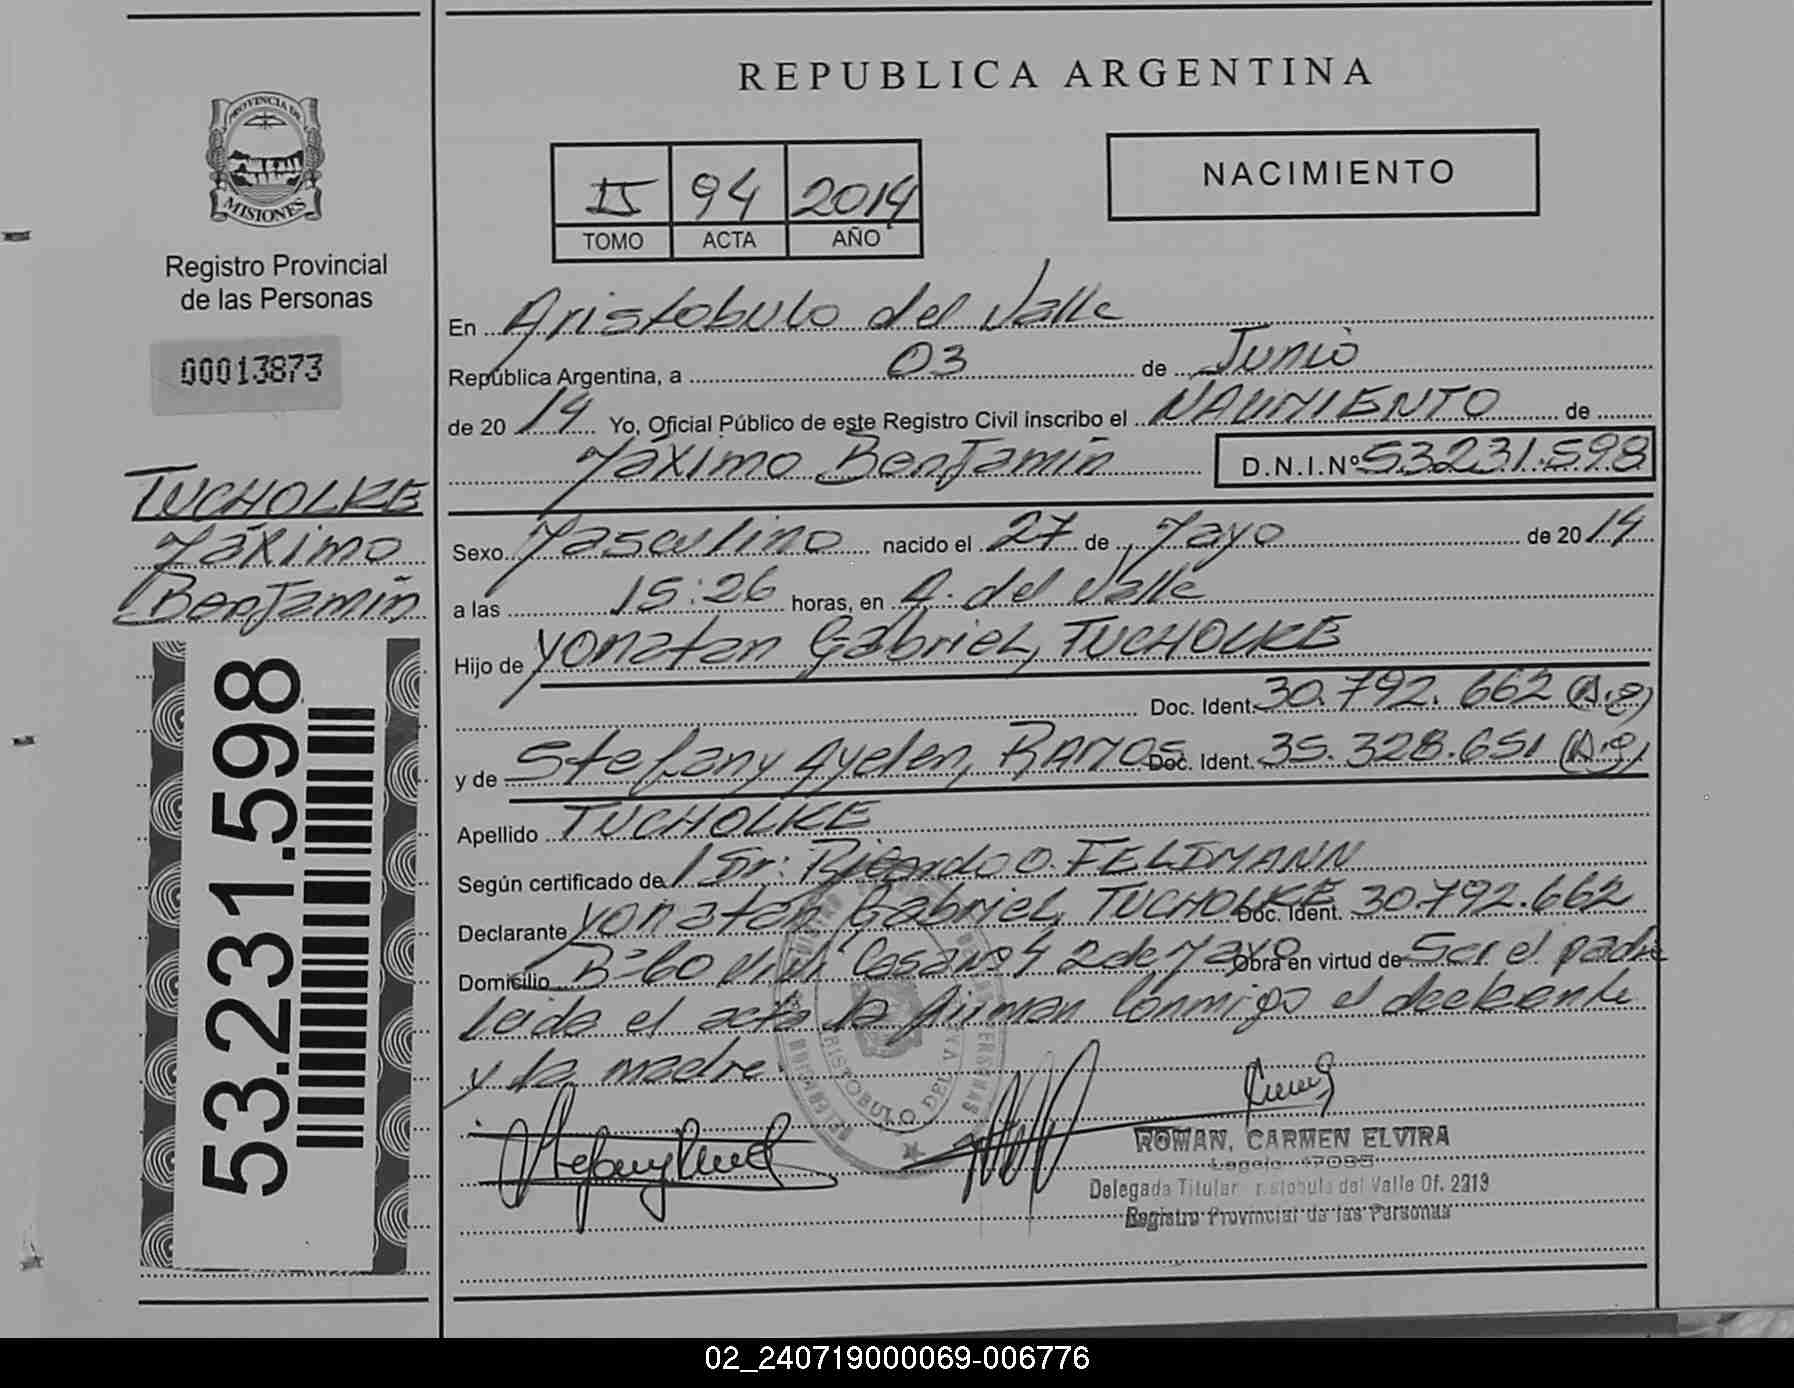 REPUBLICA ARGENTINA
PROVINCIA DE
MISIONES
Registro Provincial
de las Personas
00013873
TUCHOLKE
Máximo
Benjamín
53.231.598
II 94 2014
TOMO ACTA AÑO
NACIMIENTO
En Aristobulo del Valle
República Argentina, a 03 de Junio
de 20 14 Yo, Oficial Público de este Registro Civil inscribo el NACIMIENTO de
Máximo Benjamín D.N.I.Nº 53.231.598
Sexo Masculino nacido el 27 de Mayo de 20 14
a las 15:26 horas, en A. del Valle
Hijo de Yonatan Gabriel, TUCHOLKE
Doc. Ident. 30.792.662 (A.g)
y de Stefany Ayelen, RAMOS Doc. Ident. 35.328.651 (A.g)
Apellido TUCHOLKE
Según certificado de / Dr: Ricardo O. FELDMANN
Declarante Yonatan Gabriel, TUCHOLKE Doc. Ident. 30.792.662
Domicilio Bº 60 Casas 2 de Mayo Obra en virtud de Ser el padre
leida el acta la firman conmigo el declarante
y la madre
ROMAN, CARMEN ELVIRA
Delegada Titular Aristobulo del Valle Of. 2213
Registro Provincial de las Personas
02_240719000069-006776